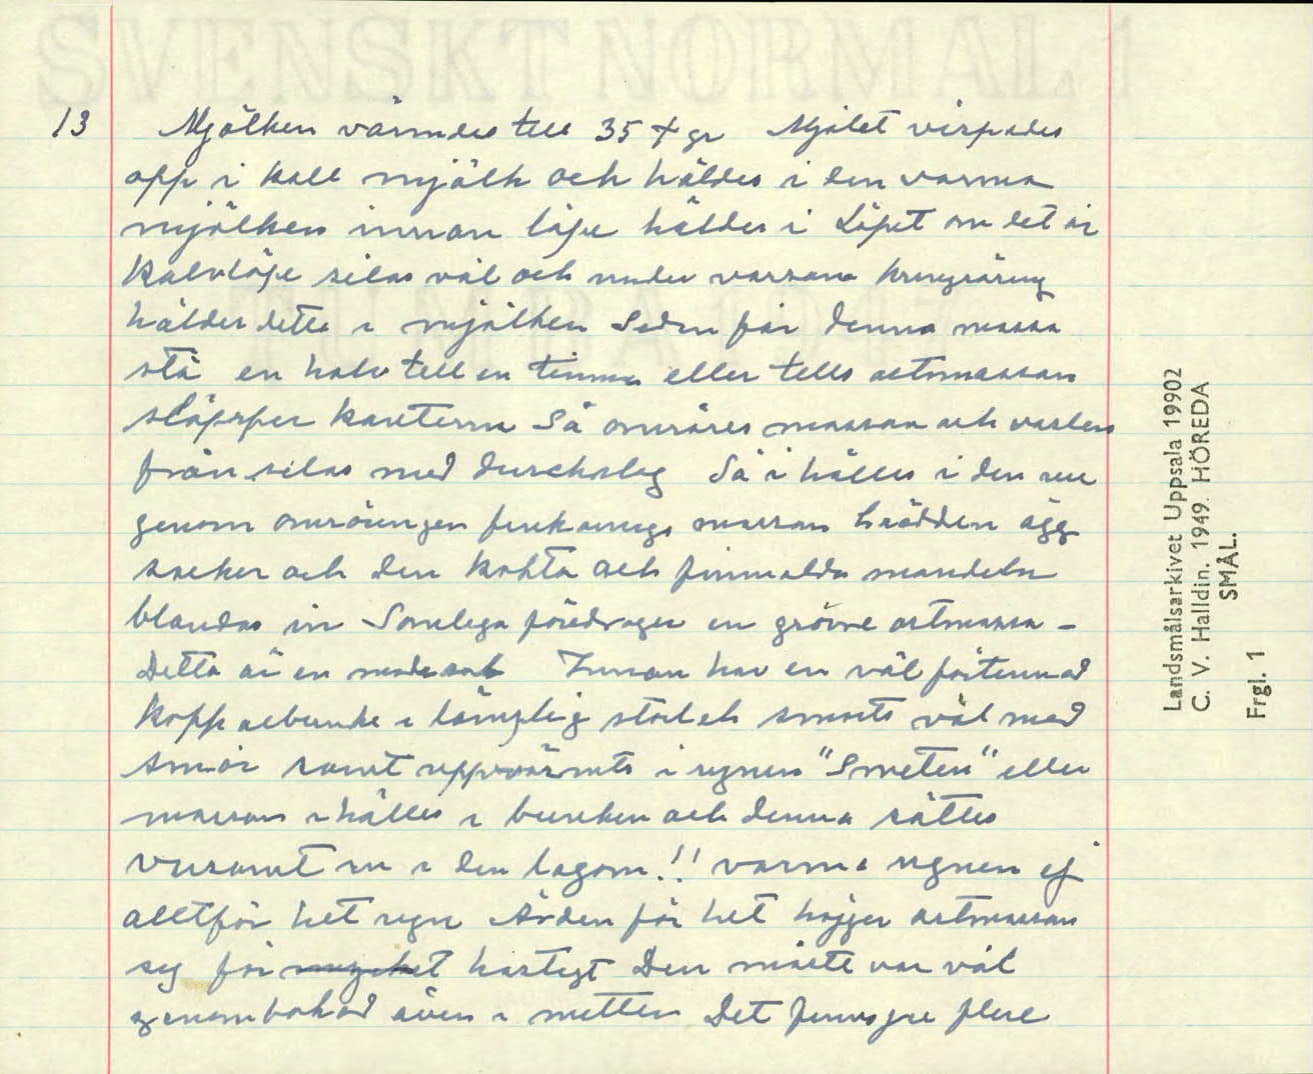 SVENSKT NORMAL 1
TUMBA 1947
13 Mjölken värmdes till 35 + gr Mjölet vispades
opp i kall mjölk och häldes i den varma
mjölken innan löpe häldes i Löpet om det är
kalvlöpe silas väl och under varsam kringröring
hälder detta i mjölken Sedan får denna massa
stå en halv till en timma eller tills ostmassan
släpper kanterna Så omröres massan och vaslen
från silas med durchslag Så i hälles i den nu
genom omröringen finkorniga massan Grädden ägg
socker och den kokta och finmalda mandeln
blandas in Somliga föredrager en grövre ostmassa -
Detta är en smaksak Innan har en väl förtennad
kopparbunke i lämplig storlek smorts väl med
smör samt uppvärmts i ugnen "Smeten" eller
massan ihälles i bunken och denna sättes
varsamt in i den lagom!! varma ugnen ej
alltför het ugn Är den för het höjger ostmassan
sig för mycket hastigt Den måste var väl
genombakad även i mitten Det finns ju flere
Landsmålsarkivet Uppsala 19902
C. V. Halldin. 1949. HÖREDA
SMÅL.
Frgl. 1